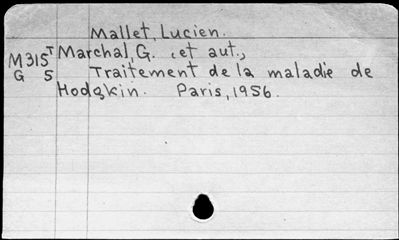 Mallet, Lucien.
M315T Marchal, G. et aut.,
G 5 Traitement de la maladie de
Hodgkin. Paris, 1956.